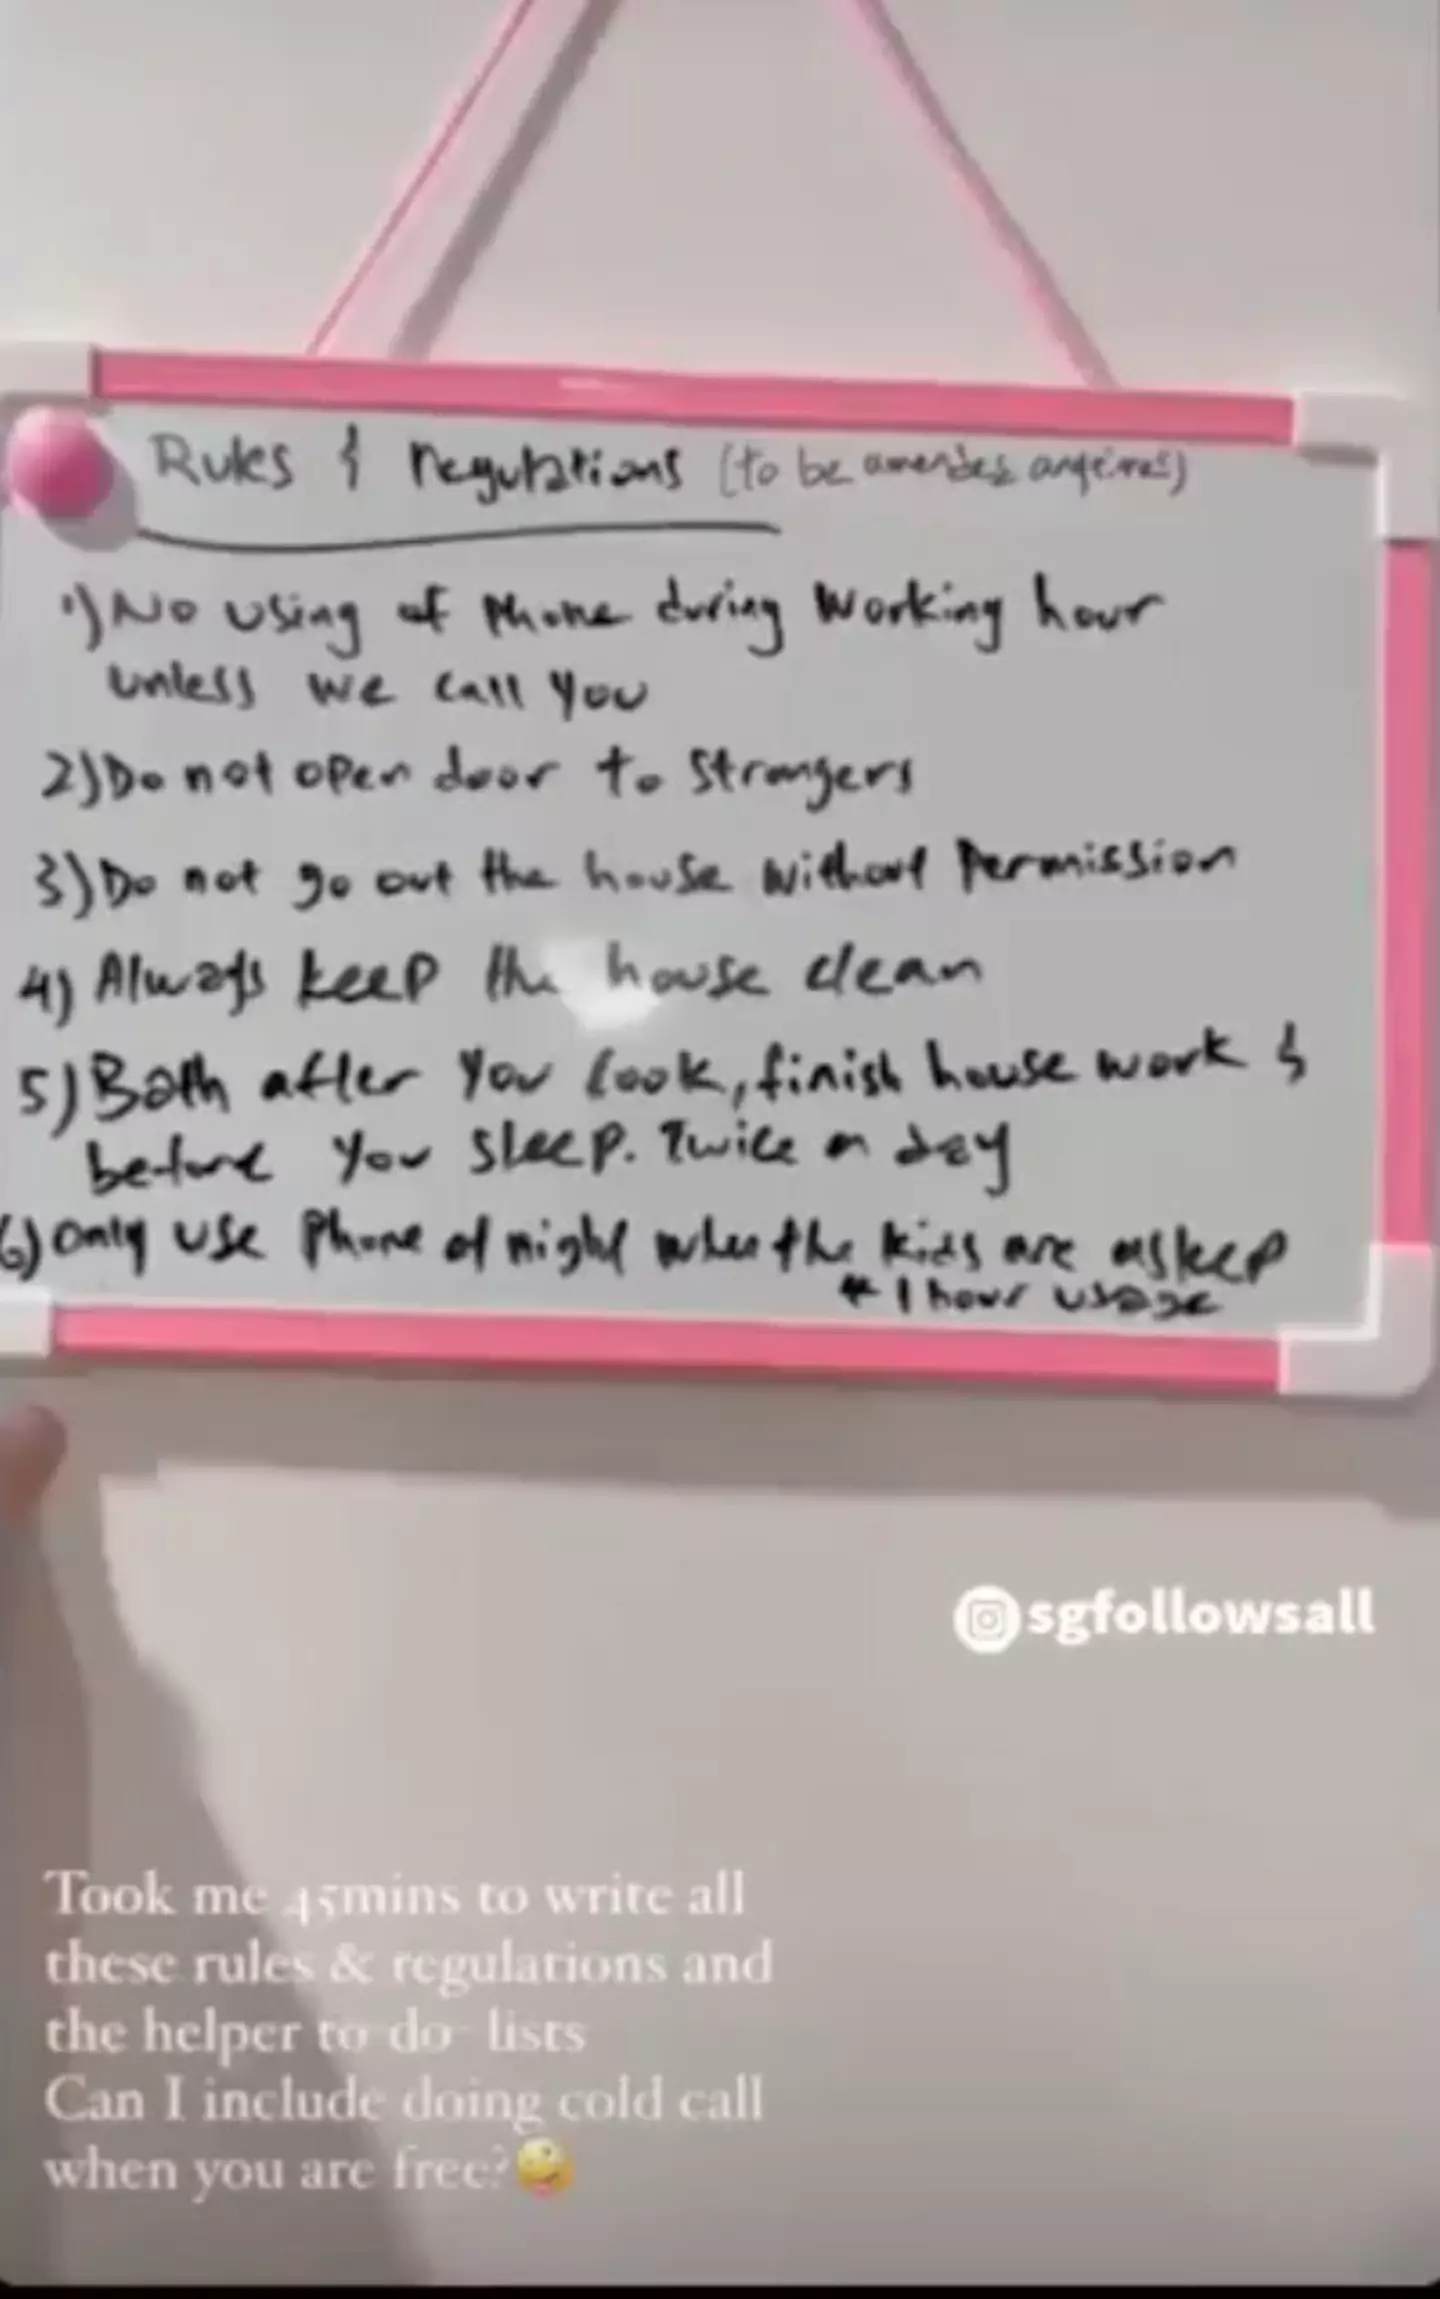 Rules & regulations (to be amended anytime)
1) No using of Phone during Working hour
unless we call You
2) Do not open door to Strangers
3) Do not go out the house without Permission
4) Always keep the house clean
5) Bath after You Cook, finish house work &
before You sleep. Twice a day
6) Only use Phone at night when the kids are asleep
* 1 hour usage
sgfollowsall
Took me 45mins to write all
these rules & regulations and
the helper to-do- lists
Can I include doing cold call
when you are free?🤪